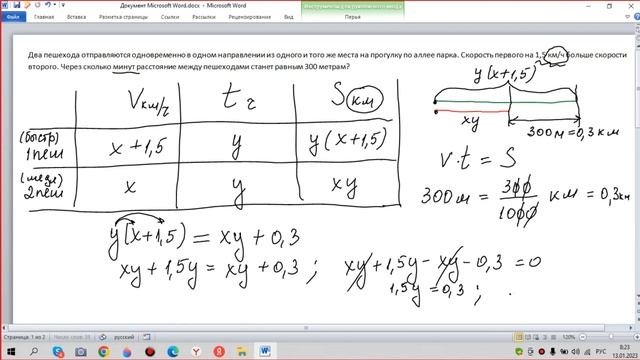 Документ Microsoft Word.docx - Microsoft Word
Инструменты для рукописного ввода
Файл Главная Вставка Разметка страницы Ссылки Рассылки Рецензирование Вид Перья
Два пешехода отправляются одновременно в одном направлении из одного и того же места на прогулку по аллее парка. Скорость первого на 1,5 км/ч больше скорости
второго. Через сколько минут расстояние между пешеходами станет равным 300 метрам?
V км/ч t ч S км
(быстр) 1 пеш x + 1,5 y y(x+1,5)
(медл) 2 пеш x y xy
y(x+1,5)
xy
300 м = 0,3 км
V·t = S
300 м = 300/1000 км = 0,3 км
y(x+1,5) = xy + 0,3
xy + 1,5y = xy + 0,3 ; xy + 1,5y - xy - 0,3 = 0
1,5y = 0,3 ;
Страница: 1 из 2 русский 120%
РУС 8:23
13.01.2023